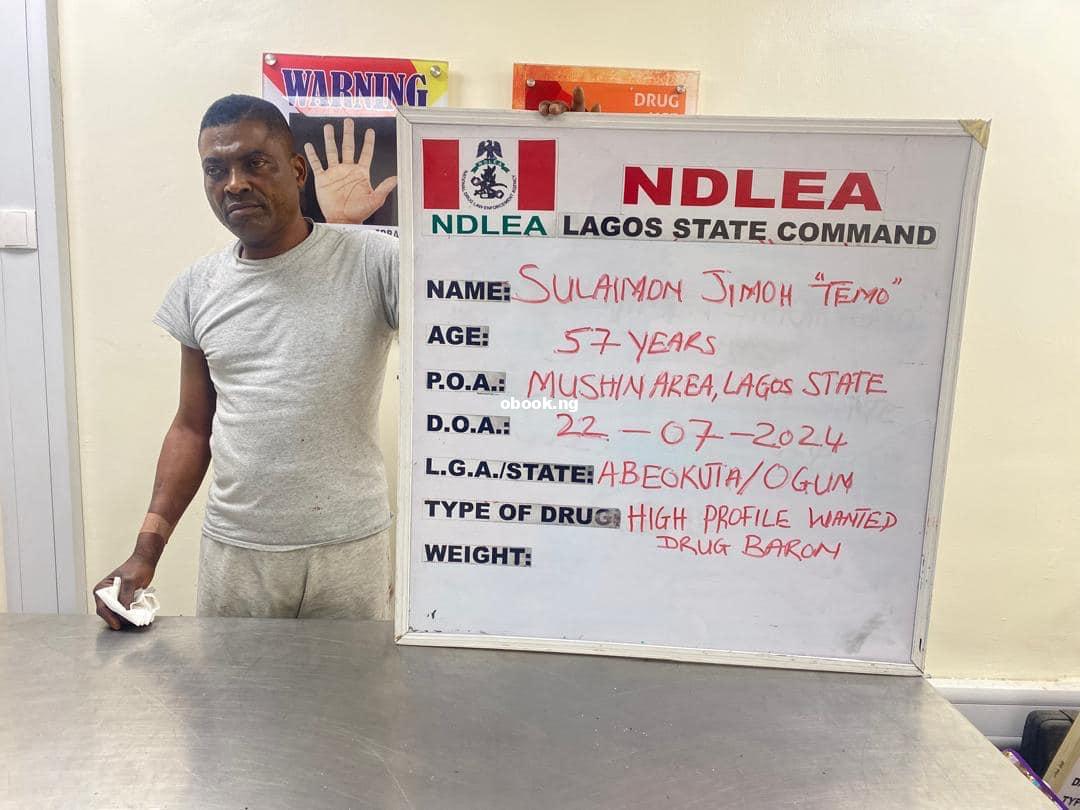 WARNING
DRUG
NDLEA
NATIONAL DRUG LAW ENFORCEMENT AGENCY
NDLEA LAGOS STATE COMMAND
NAME: SULAIMON JIMOH "TEMO"
AGE: 57 YEARS
P.O.A.: MUSHIN AREA, LAGOS STATE
obook.ng
D.O.A.: 22-07-2024
L.G.A./STATE: ABEOKUTA/OGUN
TYPE OF DRUG: HIGH PROFILE WANTED
DRUG BARON
WEIGHT: